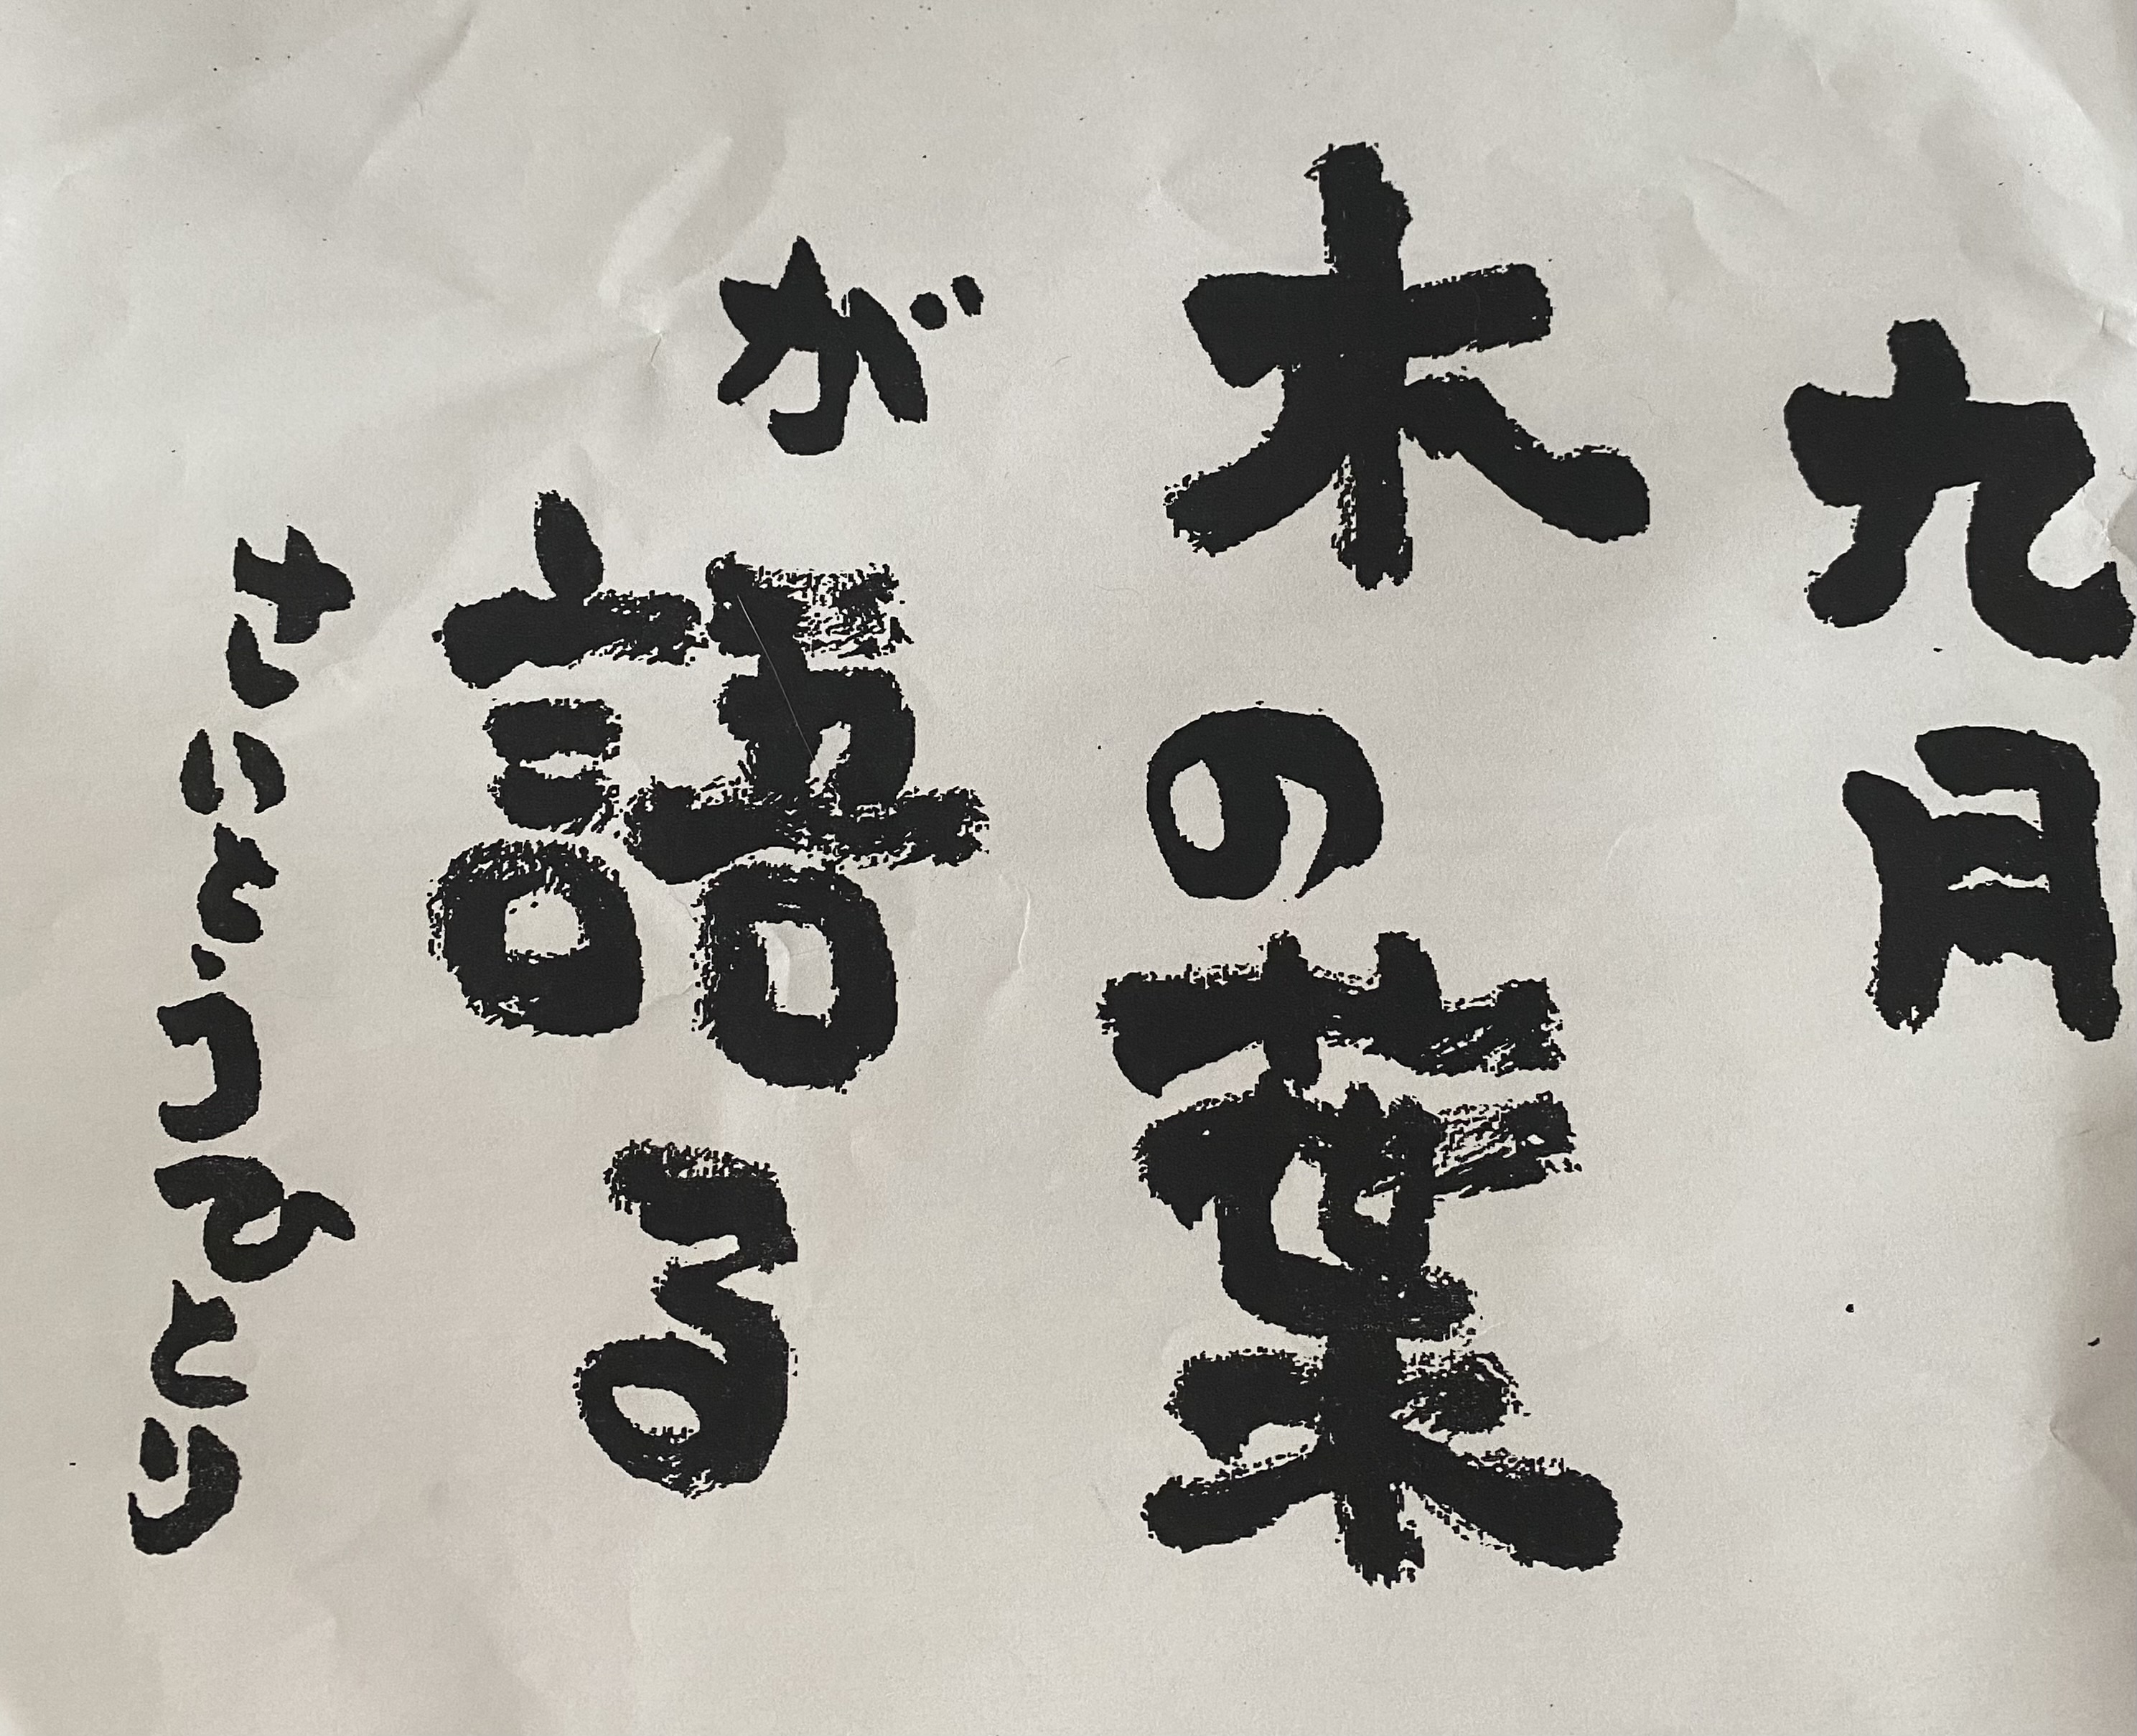 九月
木の葉
が語る
さいとう・ひとり